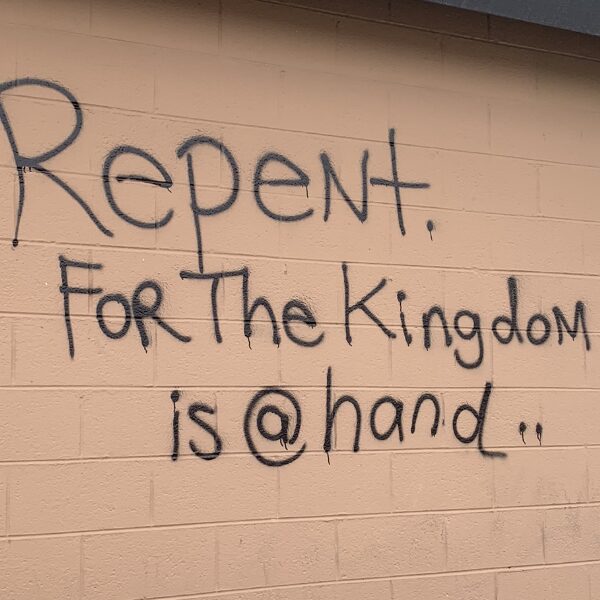 Repent.
For The Kingdom
is @ hand..